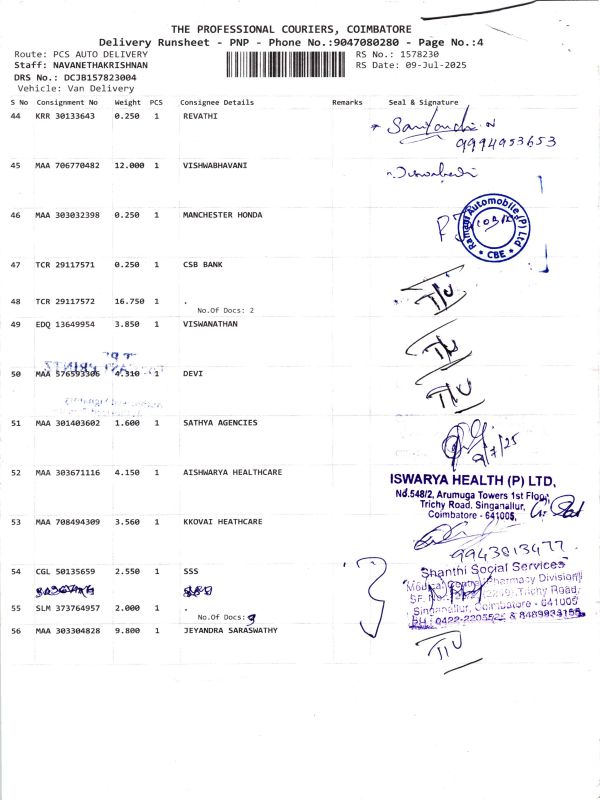 THE PROFESSIONAL COURIERS, COIMBATORE
Delivery Runsheet - PNP - Phone No.:9047080280 - Page No.:4
Route: PCS AUTO DELIVERY RS No.: 1578230
Staff: NAVANETHAKRISHNAN RS Date: 09-Jul-2025
DRS No.: DCJB157823004
Vehicle: Van Delivery
S No Consignment No Weight PCS Consignee Details Remarks Seal & Signature
44 KRR 30133643 0.250 1 REVATHI
9994953653
45 MAA 706770482 12.000 1 VISHWABHAVANI
46 MAA 303032398 0.250 1 MANCHESTER HONDA
Ramani Automobile (P) Ltd
CBE
47 TCR 29117571 0.250 1 CSB BANK
48 TCR 29117572 16.750 1 .
No.Of Docs: 2
T/U
49 EDQ 13649954 3.850 1 VISWANATHAN
T/U
50 MAA 576593306 4.310 1 DEVI
T/U
51 MAA 301403602 1.600 1 SATHYA AGENCIES
9/7/25
52 MAA 303671116 4.150 1 AISHWARYA HEALTHCARE
ISWARYA HEALTH (P) LTD,
No.548/2, Arumuga Towers 1st Floor,
Trichy Road, Singanallur,
Coimbatore - 641005,
53 MAA 708494309 3.560 1 KKOVAI HEATHCARE
9943813477
54 CGL 50135659 2.550 1 SSS
Shanthi Social Services
Medical Central Pharmacy Division
Trichy Road,
Singanallur, Coimbatore - 641005
PH : 0422-2205522 & 8489933155
55 SLM 373764957 2.000 1 .
No.Of Docs:
56 MAA 303304828 9.800 1 JEYANDRA SARASWATHY
T/U